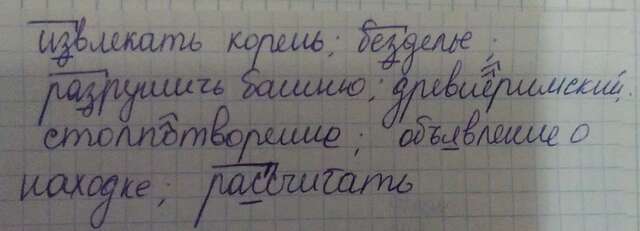 извлекать корень; безделье;
разрушить башню; древнеримский.
столпотворение; объявление о
находке; рассчитать